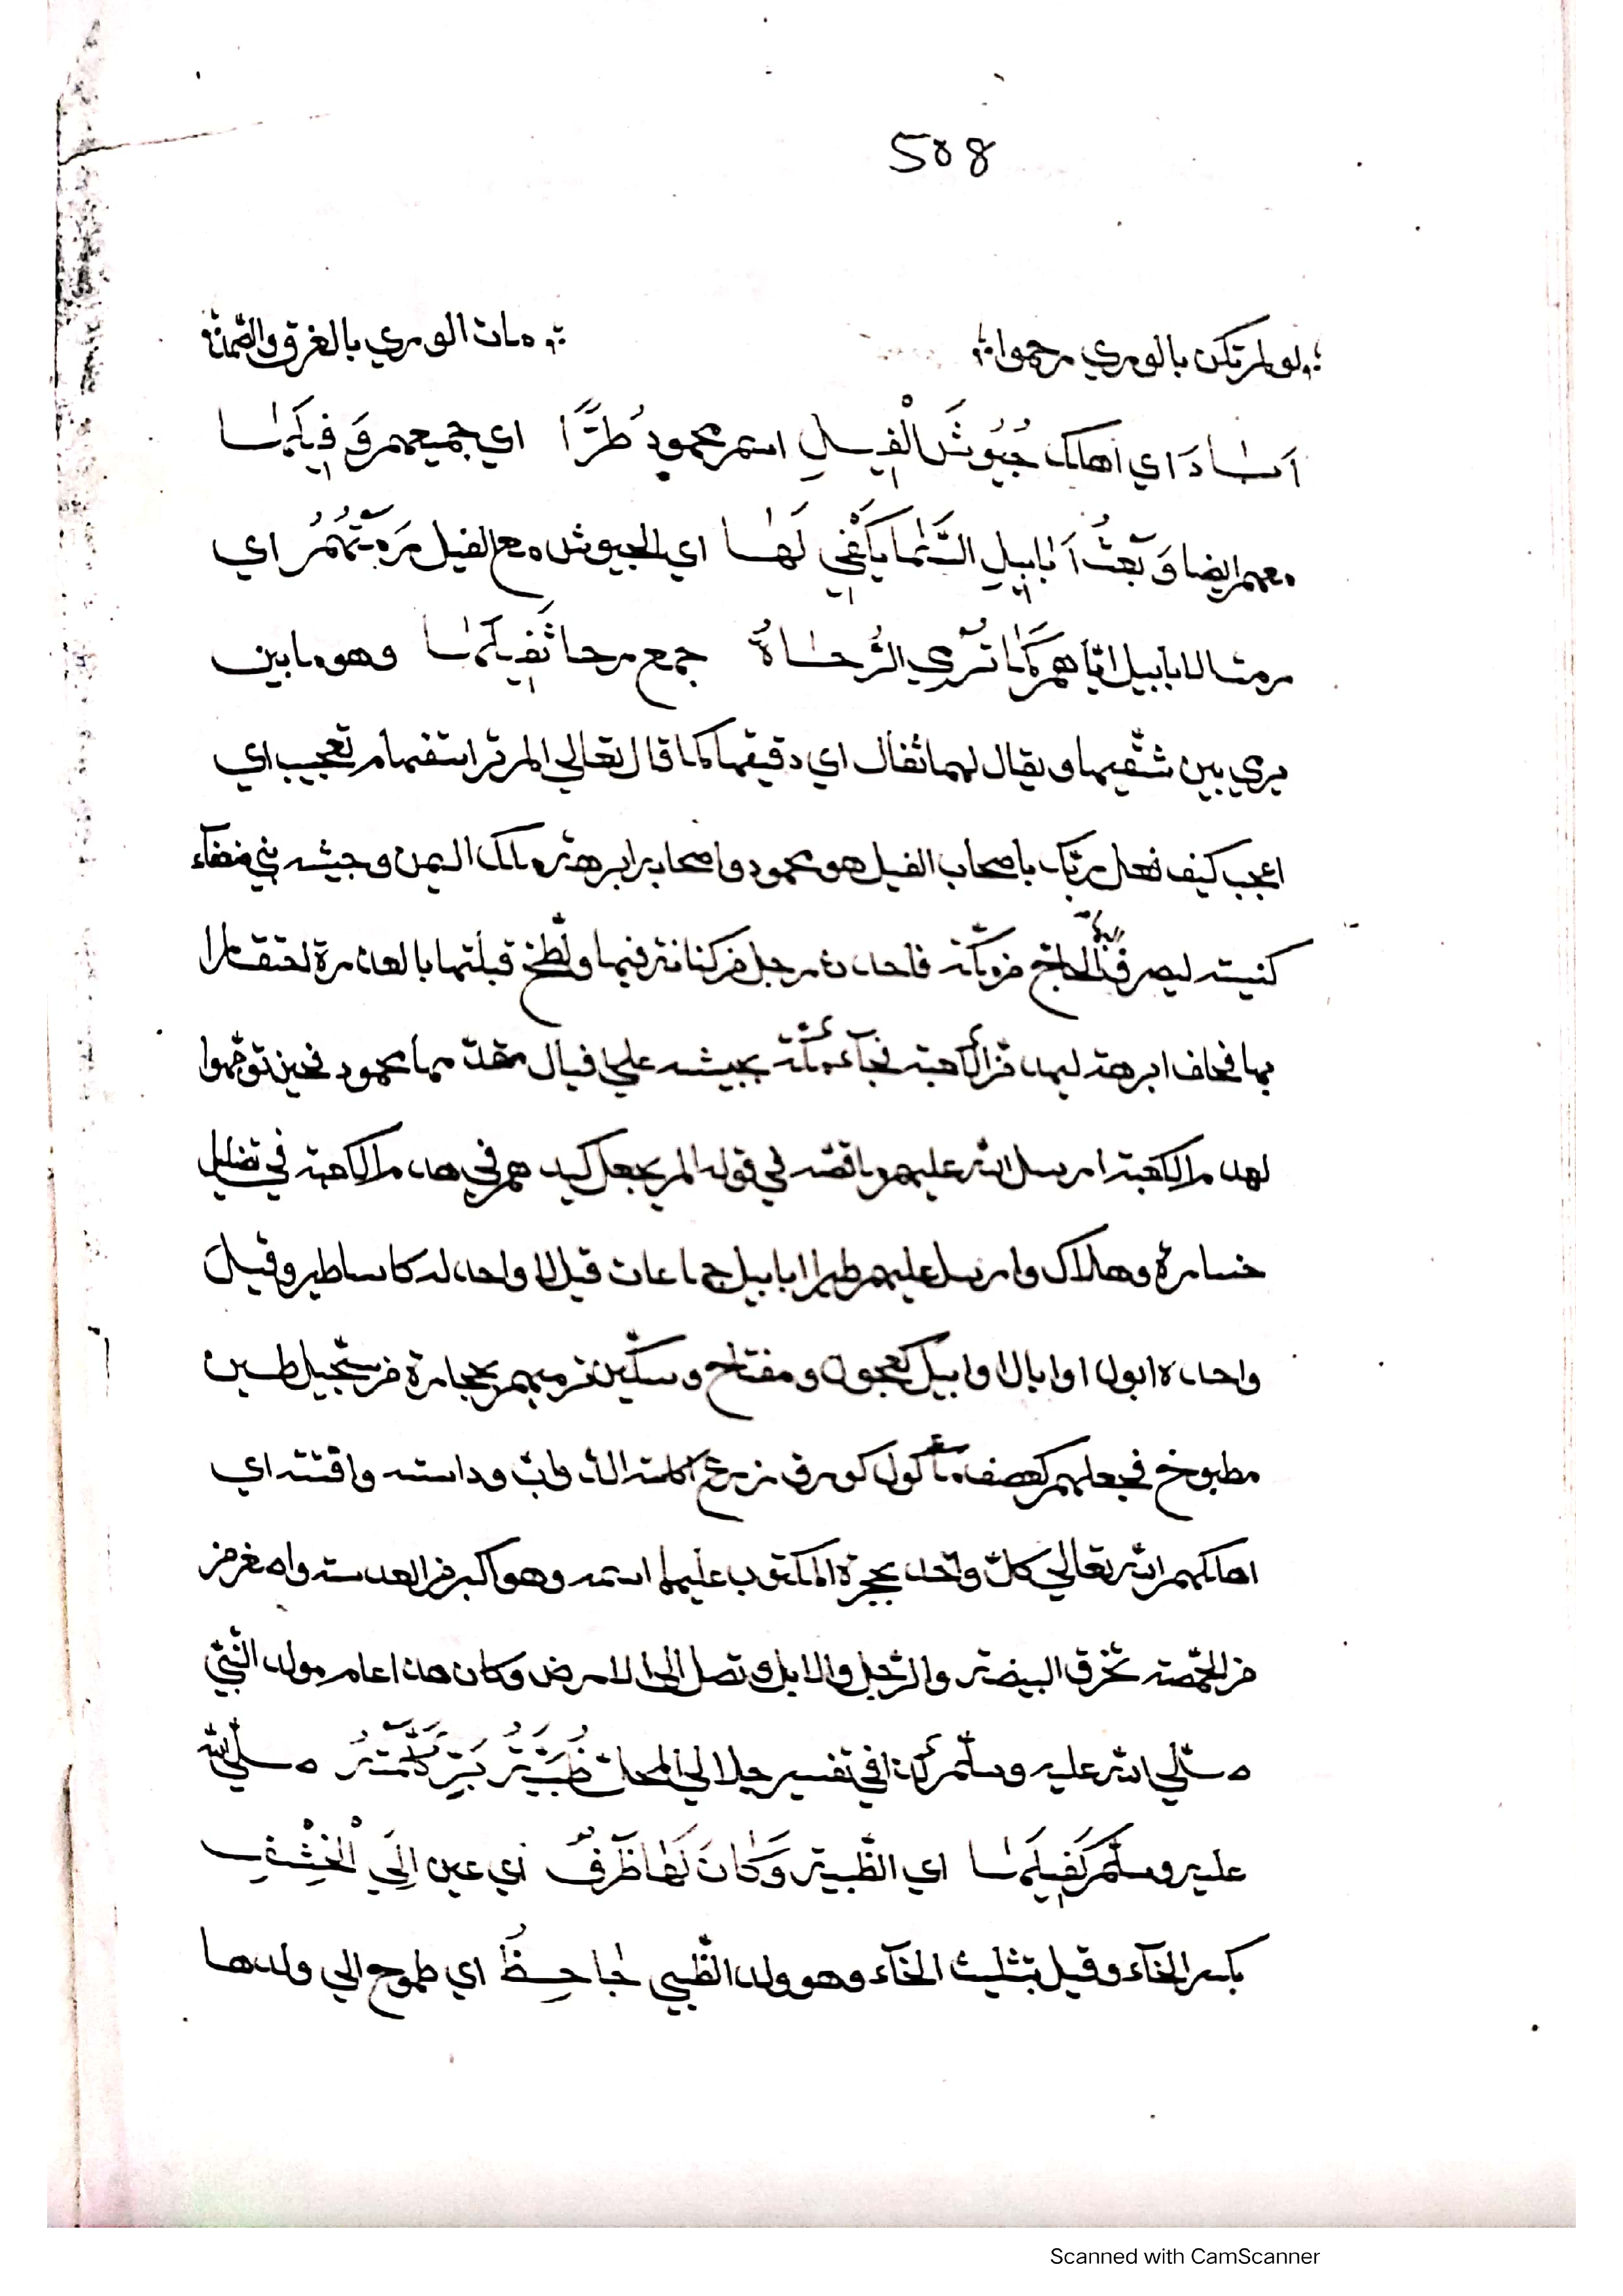 508
لو لم تكن بالوري رحموا مات الوري بالغرق والصمات
اَبَادَ اي اهلك جُيُوشَ الْفِيلِ اسم محمود طُرًّا اي جميعهم وَفِيلَهَا
معهم ايضا وَبَعْثُ اَبَابِيلِ السَّمَا يَكْفِي لَهَا اي الجيوش مع الفيل رَمَتْهُمُ اي
رمت الابابيل اياهم كَمَا تَرْمِي الرُّحَاةُ جمع رحا ثَفِيلَهَا وهو ما بين
يري بين شقيها ويقال لهما ثفال اي دقيقها كما قال تعالي الم تر استفهام تعجيب اي
اعجب كيف فعل ربك باصحاب الفيل هو محمود واصحابه ابرهة ملك اليمن وجيشه بني صنعآء
كنيسة ليصرف اليها الحاج من مكة فاحدث رجل من كنانة فيها ولطخ قبلتها بالعذرة احتقارا
بها فحلف ابرهة ليهدمن الكعبة فجآء مكة بجيشه علي افيال مقدمها محمود فحين توجهوا
لهدم الكعبة ارسل الله عليهم ما قصه في قوله الم يجعل كيدهم في هدم الكعبة في تضليل
خسارة وهلاك وارسل عليهم طيرا ابابيل جماعات قيل لا واحد له كاساطير وقيل
واحده ابول او ابال او ابيل كعجول ومفتاح وسكين ترميهم بحجارة من سجيل طين
مطبوخ فجعلهم كعصف مأكول كورق زرع اكلته الدوابّ وداسته وافنته اي
اهلكهم الله تعالي كلّ واحد بحجرة المكتوب عليها اسمه وهو اكبر من العدسة واصغر من
من الحمّصة تخرق البيضة والرّجل والابل وتصل الي الارض وكان هذا عام مولد النّبيّ
صلّي الله عليه وسلّم كذا في تفسير جلالي المحلي ظَبْيَةُ بَرٍّ كَلَّمَتْهُ صلي الله
عليه وسلّم كَفِيلَهَا اي الظّبية وَكَانَ لَهَا طَرْفٌ اي عين اِلَي الْخِشْفِ
بكسر الخآء وقيل بتثليث الخآء وهو ولد الظّبي جَاحِظُ اي طموح الي ولدها
Scanned with CamScanner